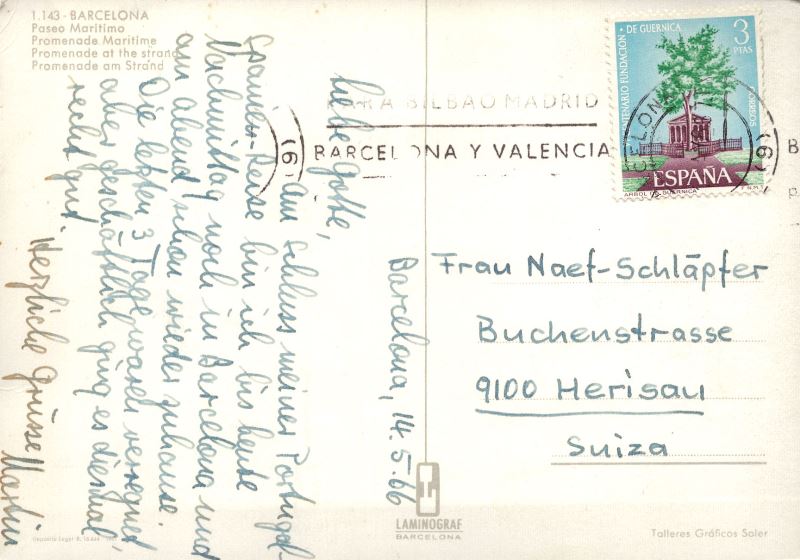 1.143 - BARCELONA
Paseo Marítimo
Promenade Maritime
Promenade at the strand
Promenade am Strand
Barcelona, 14.5.66
Liebe Gotte,
Am Schluss meiner Portugal-
Spanien-Reise bin ich bis heute
Nachmittag noch in Barcelona und
am abend schon wieder zuhause.
Die letzten 3 Tage waren verregnet
aber geschäftlich ging es diesmal
recht gut.
Herzliche Grüsse Martin
PARA BILBAO MADRID
BARCELONA Y VALENCIA
CENTENARIO FUNDACION DE GUERNICA
3
PTAS
CORREOS
ESPAÑA
ARBOL DE GUERNICA
F.N.M.T.
Frau Naef-Schläpfer
Buchenstrasse
9100 Herisau
Suiza
LAMINOGRAF
BARCELONA
Talleres Gráficos Soler
Depósito Legal B.